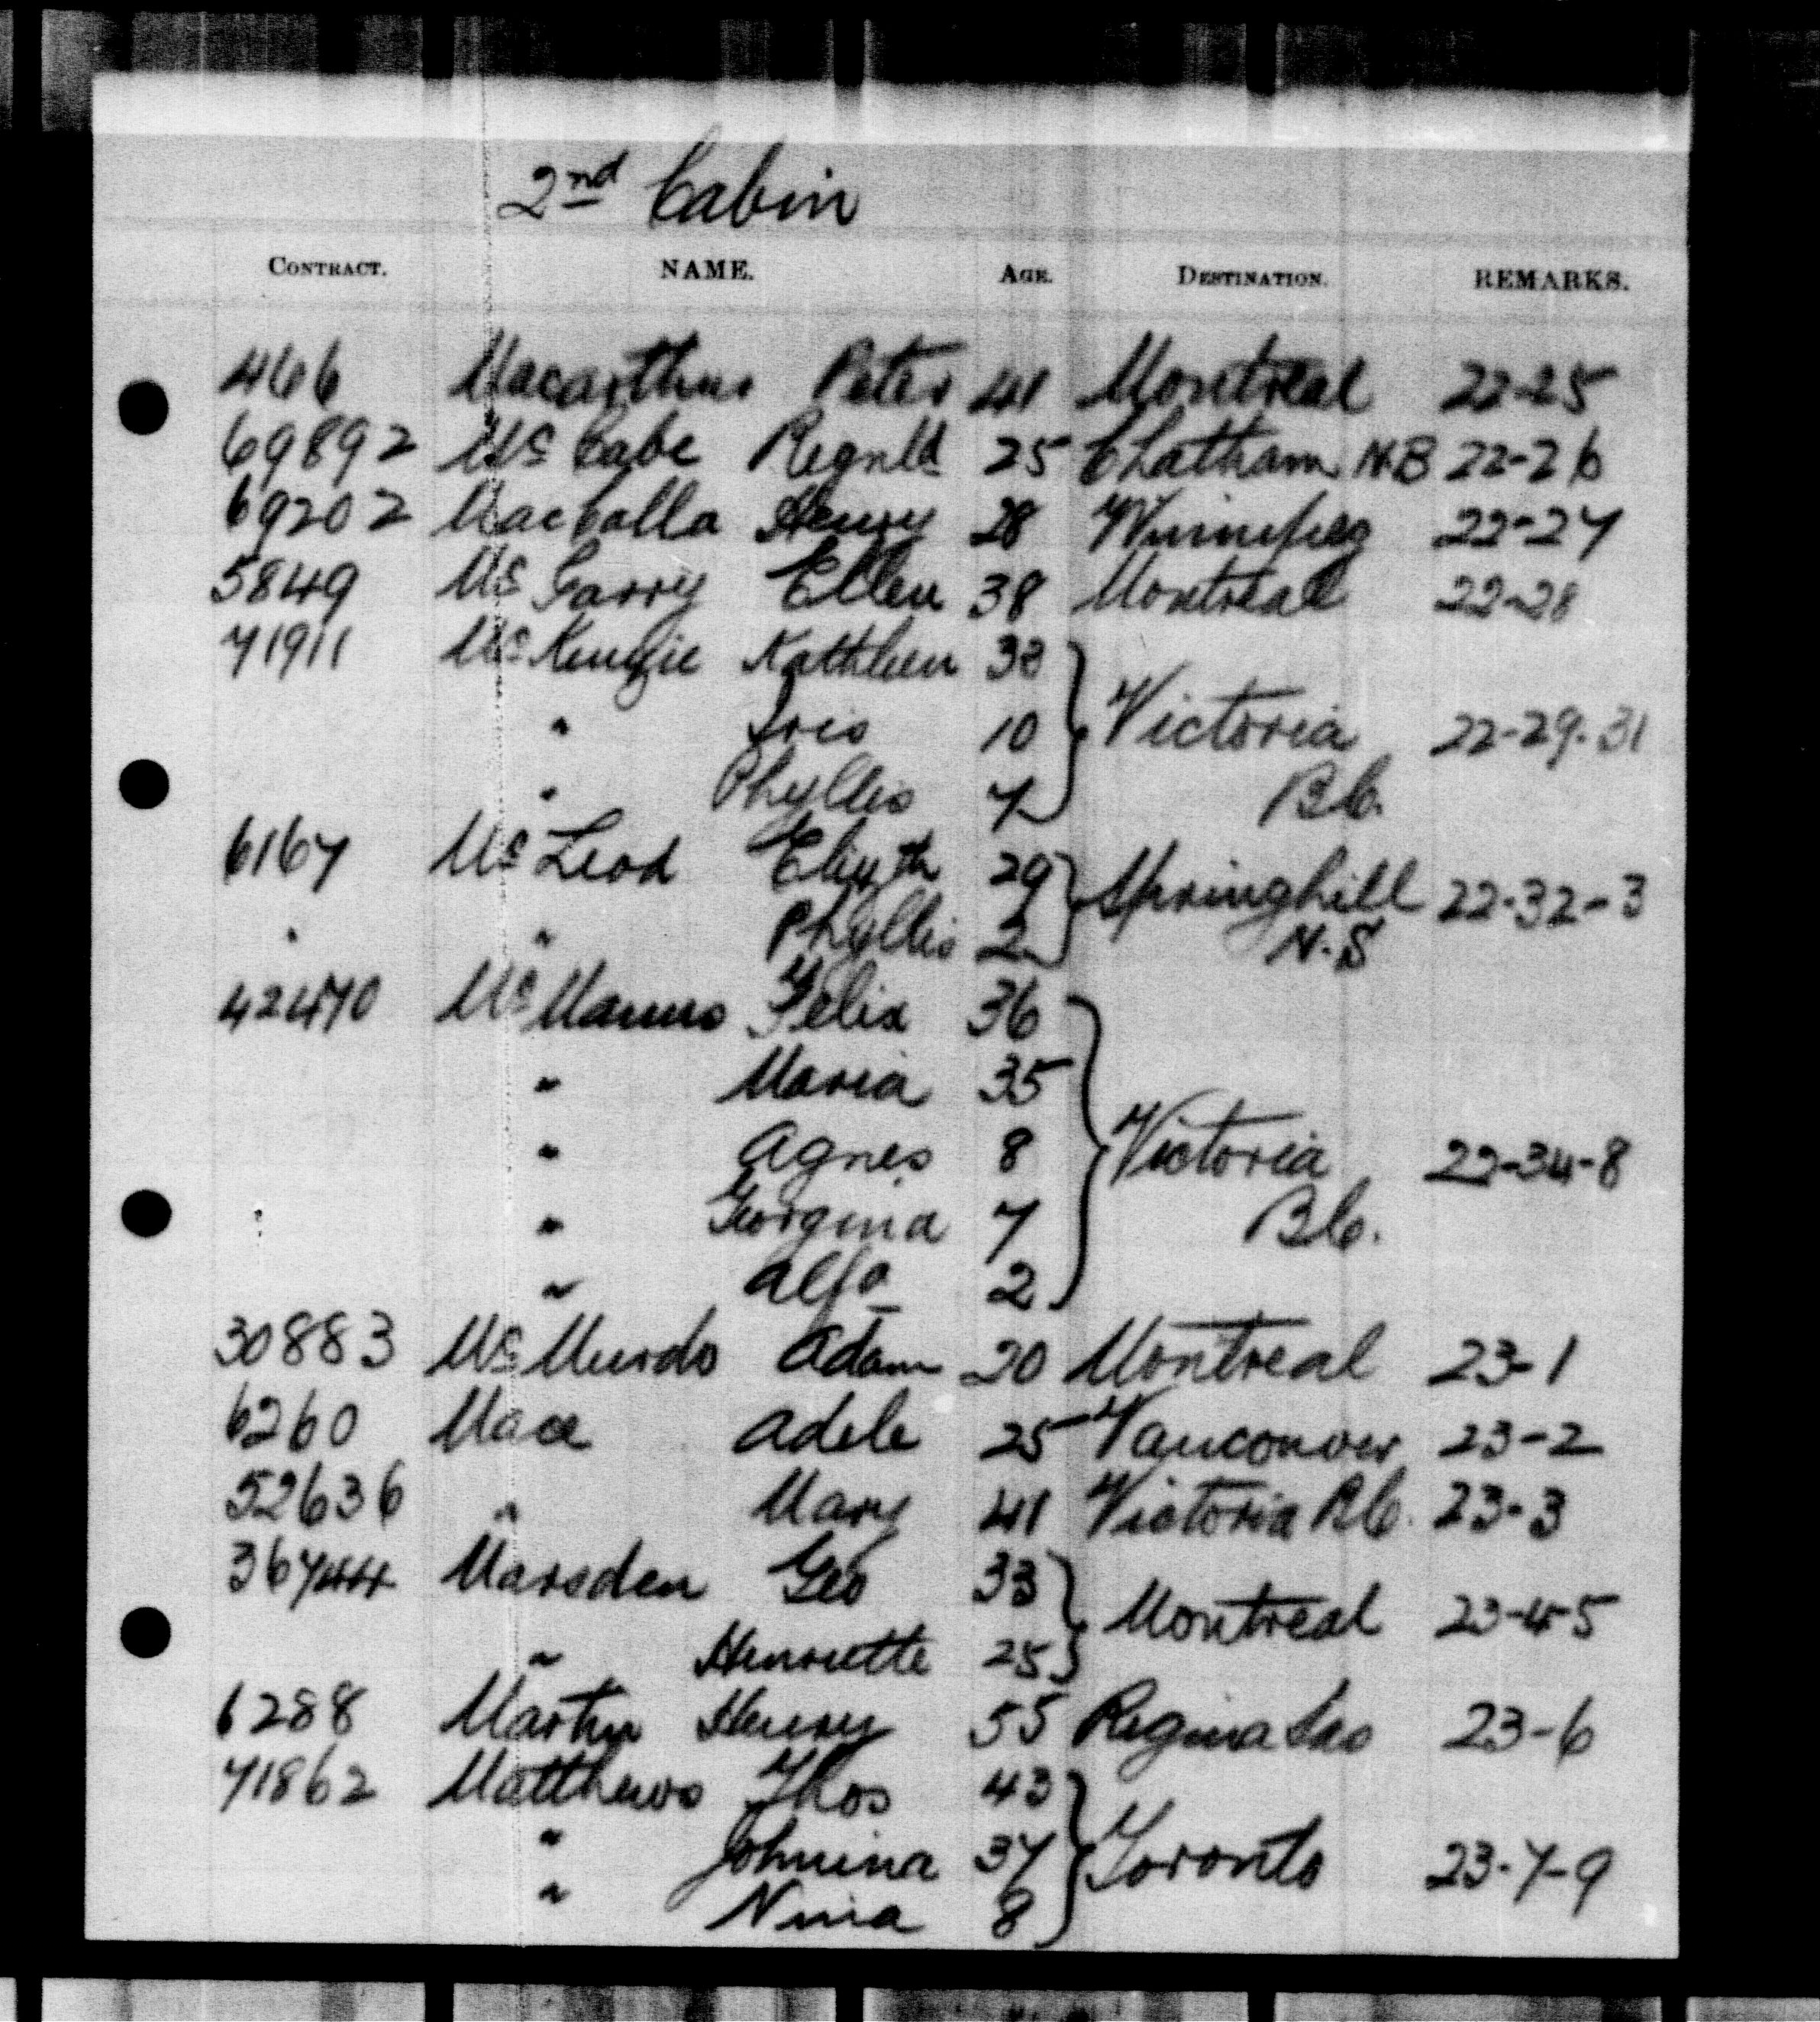 2nd Cabin
CONTRACT. NAME. AGE. DESTINATION. REMARKS.
466 Macarthur Peter 41 Montreal 22-25
69892 McCabe Regnld 25 Chatham N.B 22-26
69202 MacCalla Henry 28 Winnipeg 22-27
5849 McGarry Ellen 38 Montreal 22-28
71911 McKenzie Kathleen 38
" Iris 10 Victoria 22-29-31
" Phyllis 7 B.C.
6167 McLeod Elizth 29 Springhill 22-32-3
" " Phyllis 2 N.S
42470 McManus Felix 36
" Maria 35
" Agnes 8 Victoria 22-34-8
" Georgina 7 B.C.
" Alfd 2
30883 McMurdo Adam 20 Montreal 23-1
6260 Mace Adele 25 Vancouver 23-2
52636 " Mary 41 Victoria B.C. 23-3
36744 Marsden Geo 33 Montreal 23-4-5
" Henriette 25
6288 Martin Henry 55 Regina Sas 23-6
71862 Matthews Thos 43
" Johnina 37 Toronto 23-7-9
" Nina 8